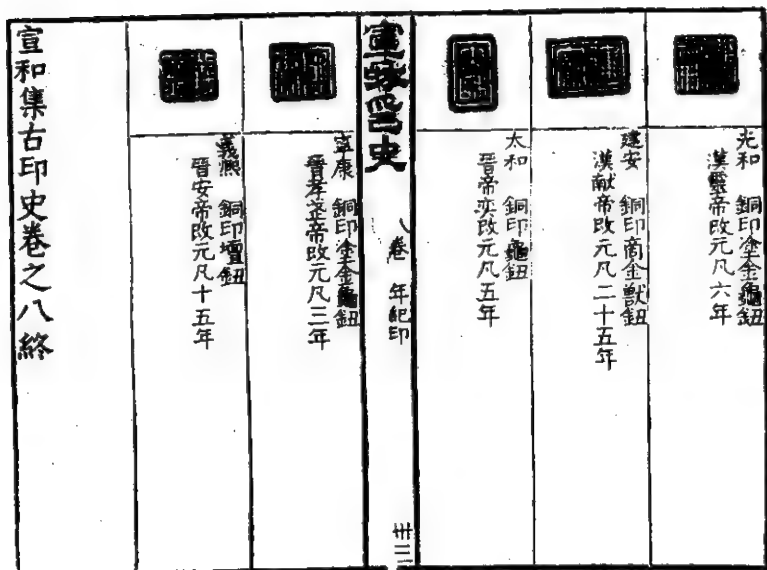 光和 銅印塗金龜鈕
漢靈帝改元凡六年
建安 銅印商金獸鈕
漢献帝改元凡二十五年
太和 銅印龜鈕
晉帝奕改元凡五年
宣和印史
八卷 年紀印
卅二
寕康 銅印塗金龜鈕
晉孝武帝改元凡三年
義熈 銅印壇鈕
晉安帝改元凡十五年
宣和集古印史卷之八終